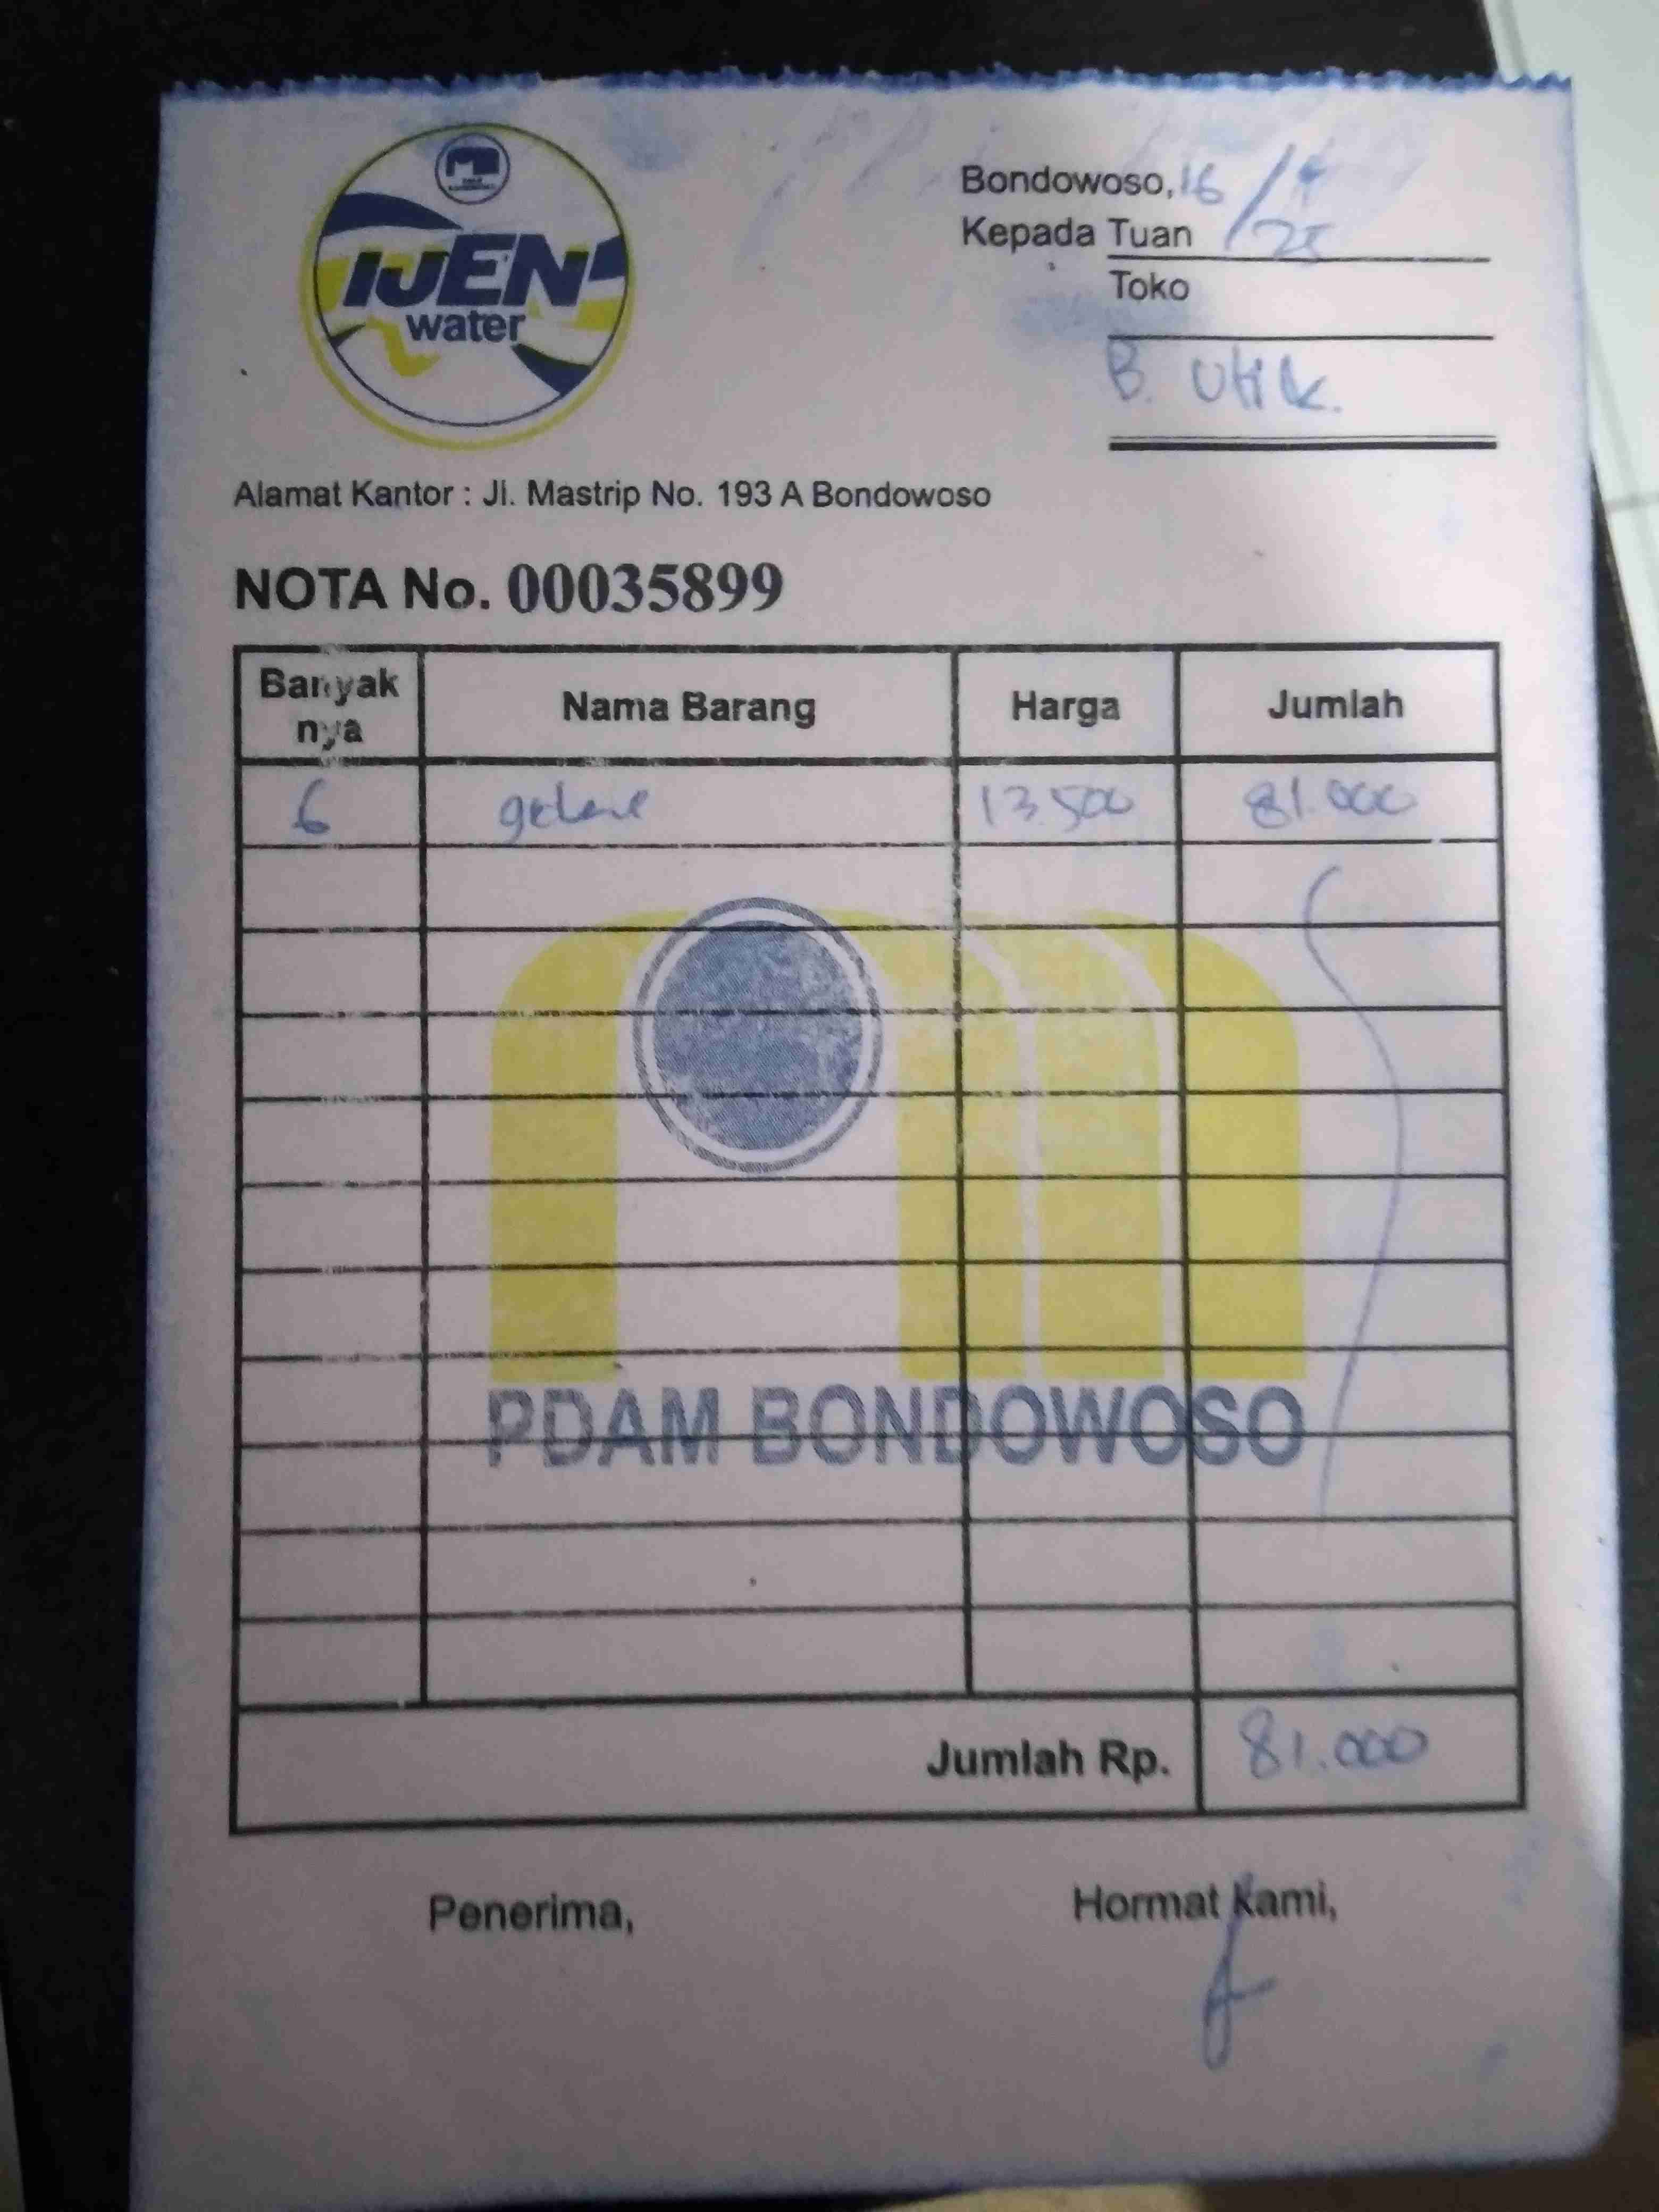 IJEN
water
Bondowoso, 16/4
Kepada Tuan /25
Toko
B. Utik.
Alamat Kantor : Jl. Mastrip No. 193 A Bondowoso
NOTA No. 00035899
Banyak nya Nama Barang Harga Jumlah
6 13.500 81.000
PDAM BONDOWOSO
Jumlah Rp. 81.000
Penerima, Hormat Kami,